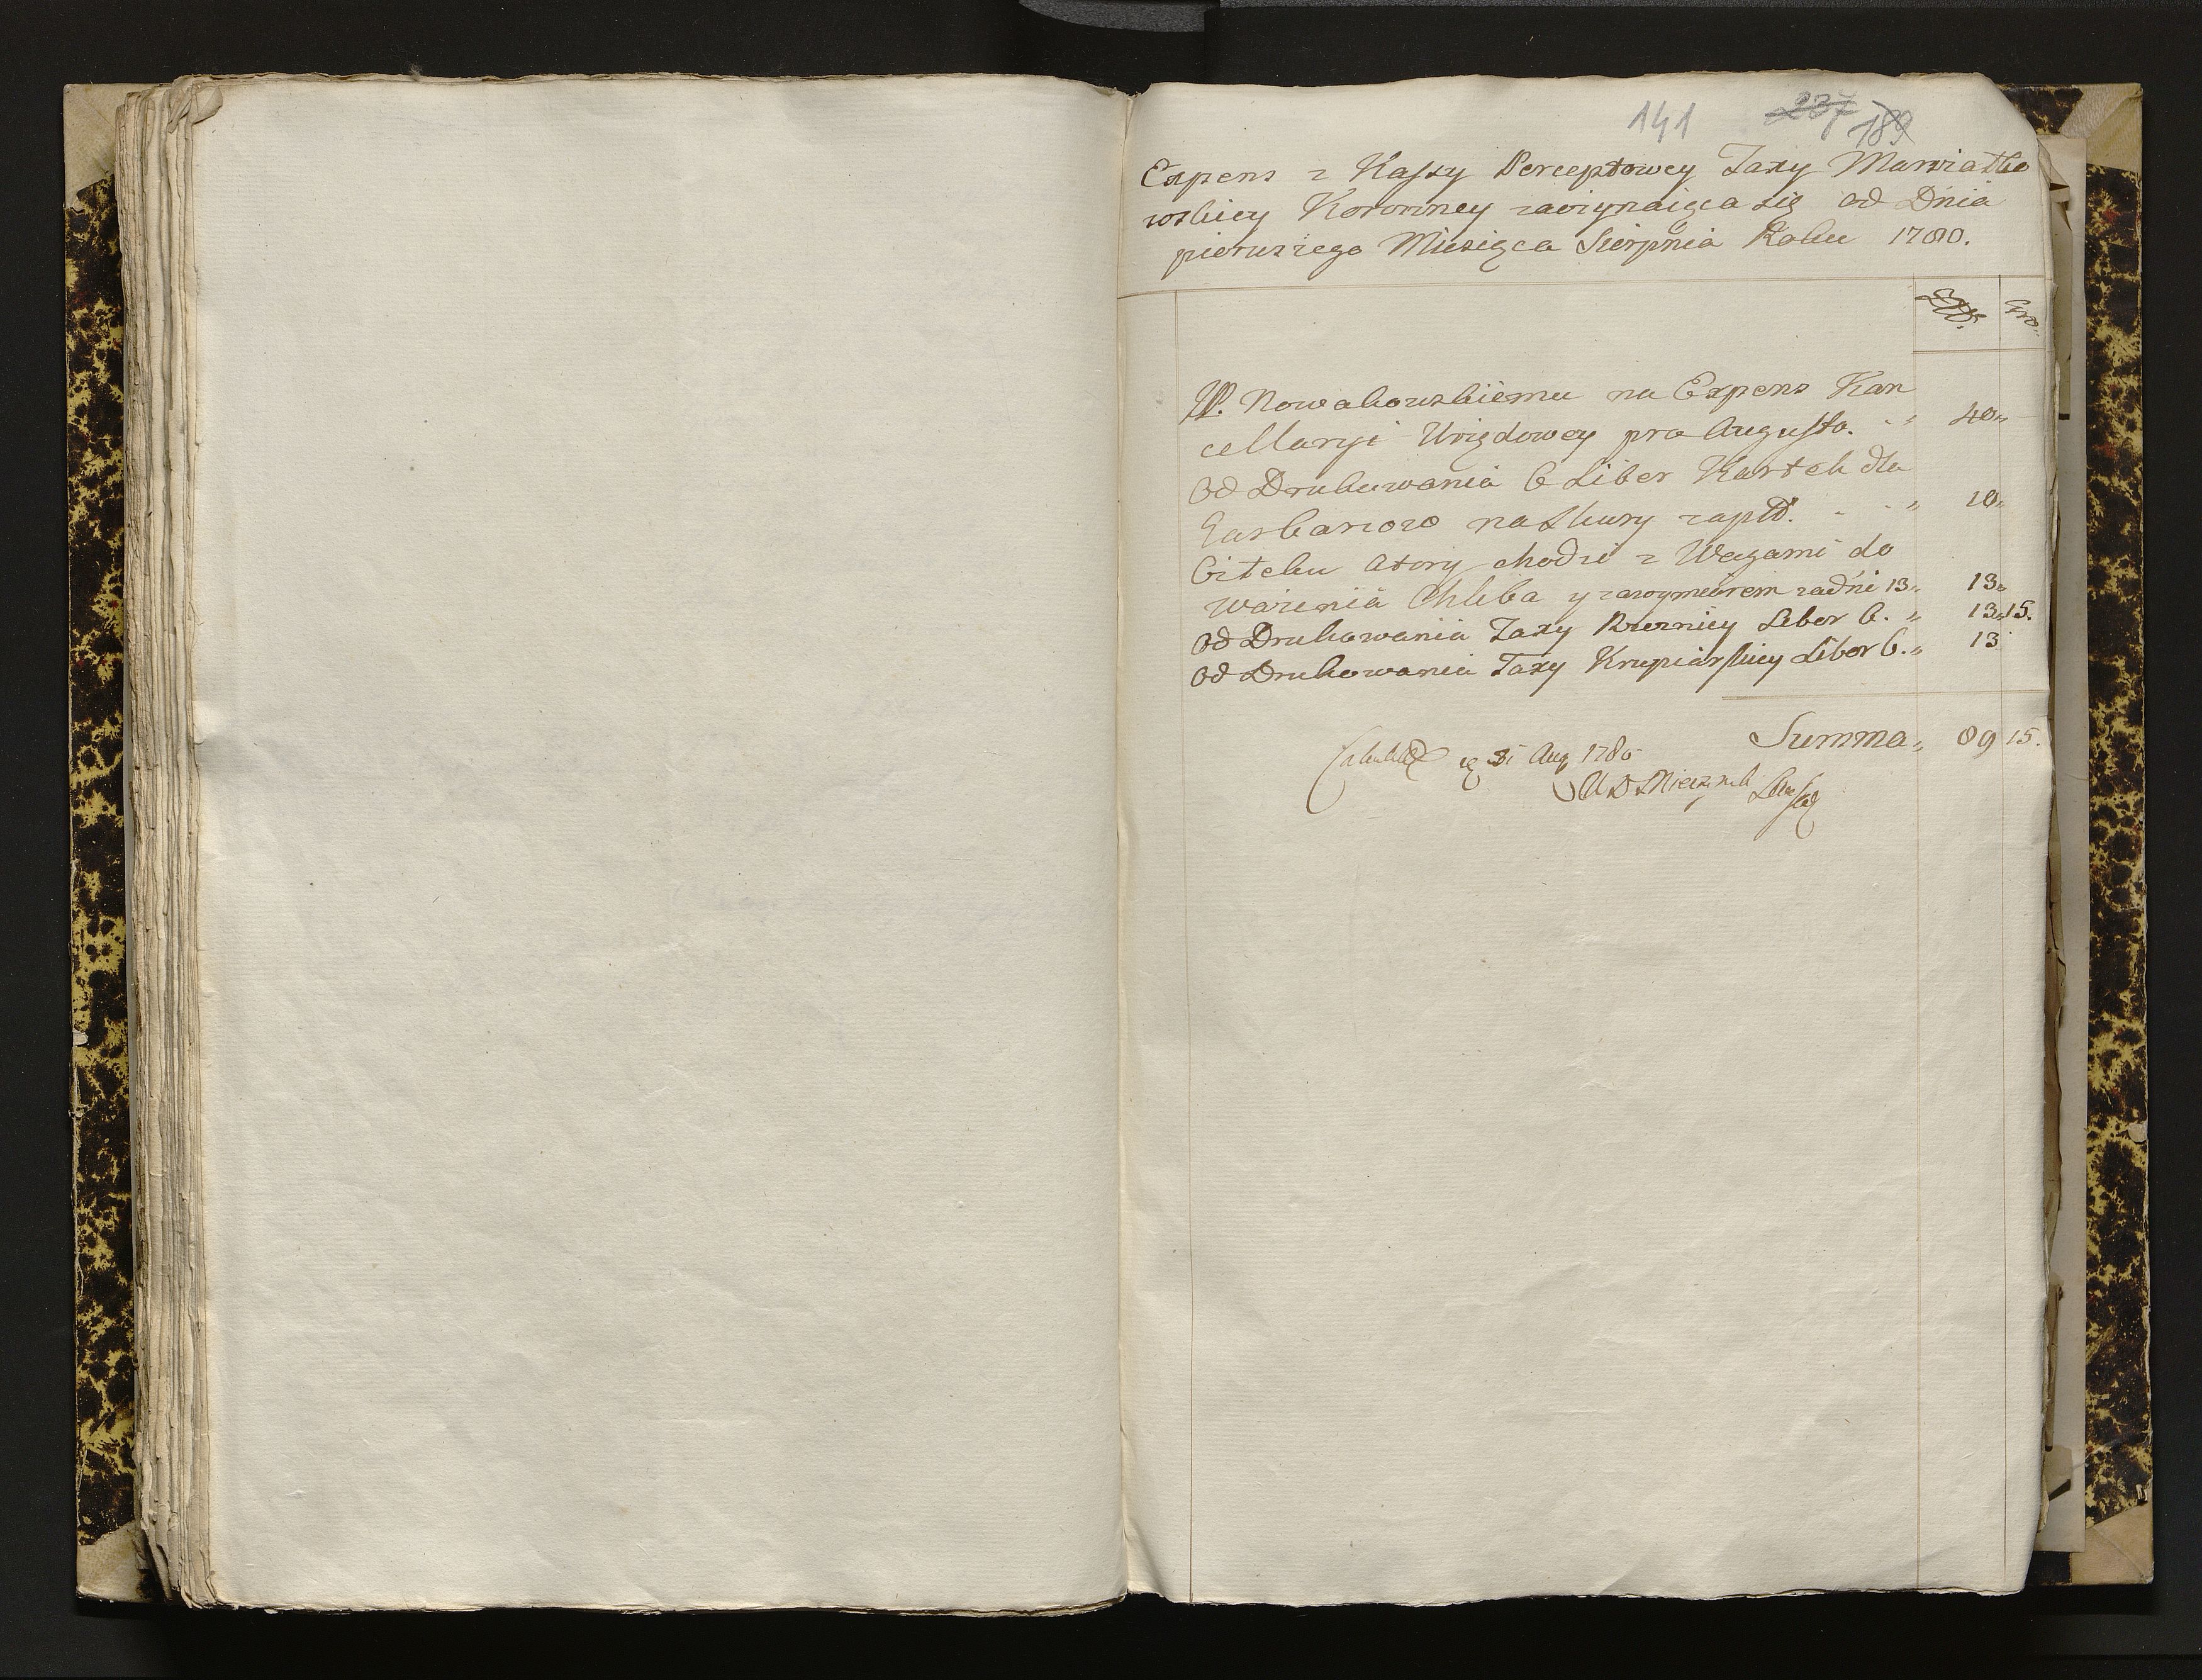 141 237 189
Expens z Kaszy Perceptowey Taxy Marszałko
wskiey Koronney zaczynaiąca się od Dnia
pierwszego Miesiąca Sierpnia Roku 1780.
Złł. Gro.
JP. Nowakowskiemu na Expens Kan
cellaryi Urzędowey pro Augusto. „ 40„
Od Drukowania 6 Liber Kartek dla
Garbarzow na Skury zapłł. „ 10„
Ceitcku ktory chodzi z Wagami do
ważenia Chleba y zawymiarem za dni 13„ 13„
Od Drukowania Taxy Rzezniey Liber 6. „ 13„15.
Od Drukowania Taxy Krupiarskiey Liber 6. „ 13
Summa„ 89 15.
31 Aug 1780